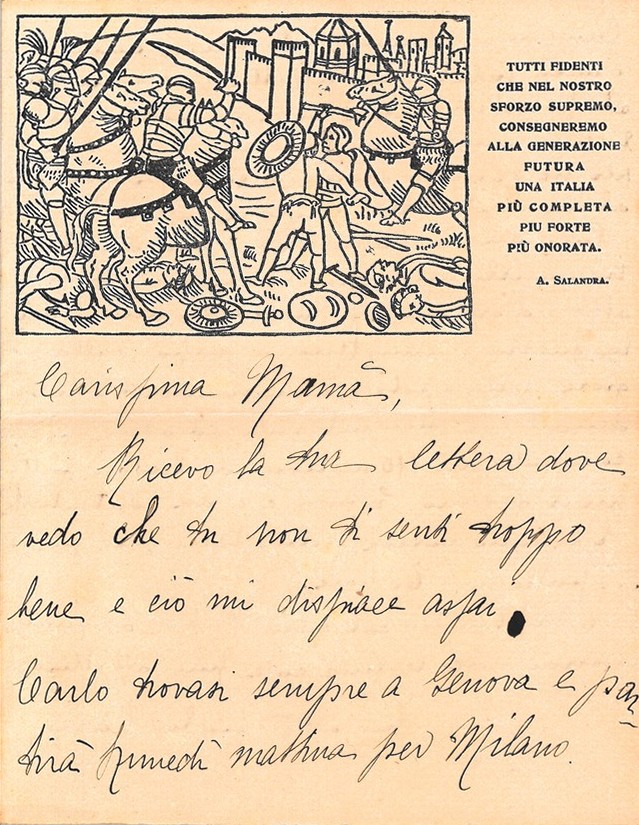 TUTTI FIDENTI
CHE NEL NOSTRO
SFORZO SUPREMO,
CONSEGNEREMO
ALLA GENERAZIONE
FUTURA
UNA ITALIA
PIÙ COMPLETA
PIU FORTE
PIÙ ONORATA.
A. SALANDRA.
Carissima Mamà,
Ricevo la tua lettera dove
vedo che tu non ti senti troppo
bene e ciò mi dispiace assai.
Carlo trovasi sempre a Genova e par-
tirà lunedì mattina per Milano.